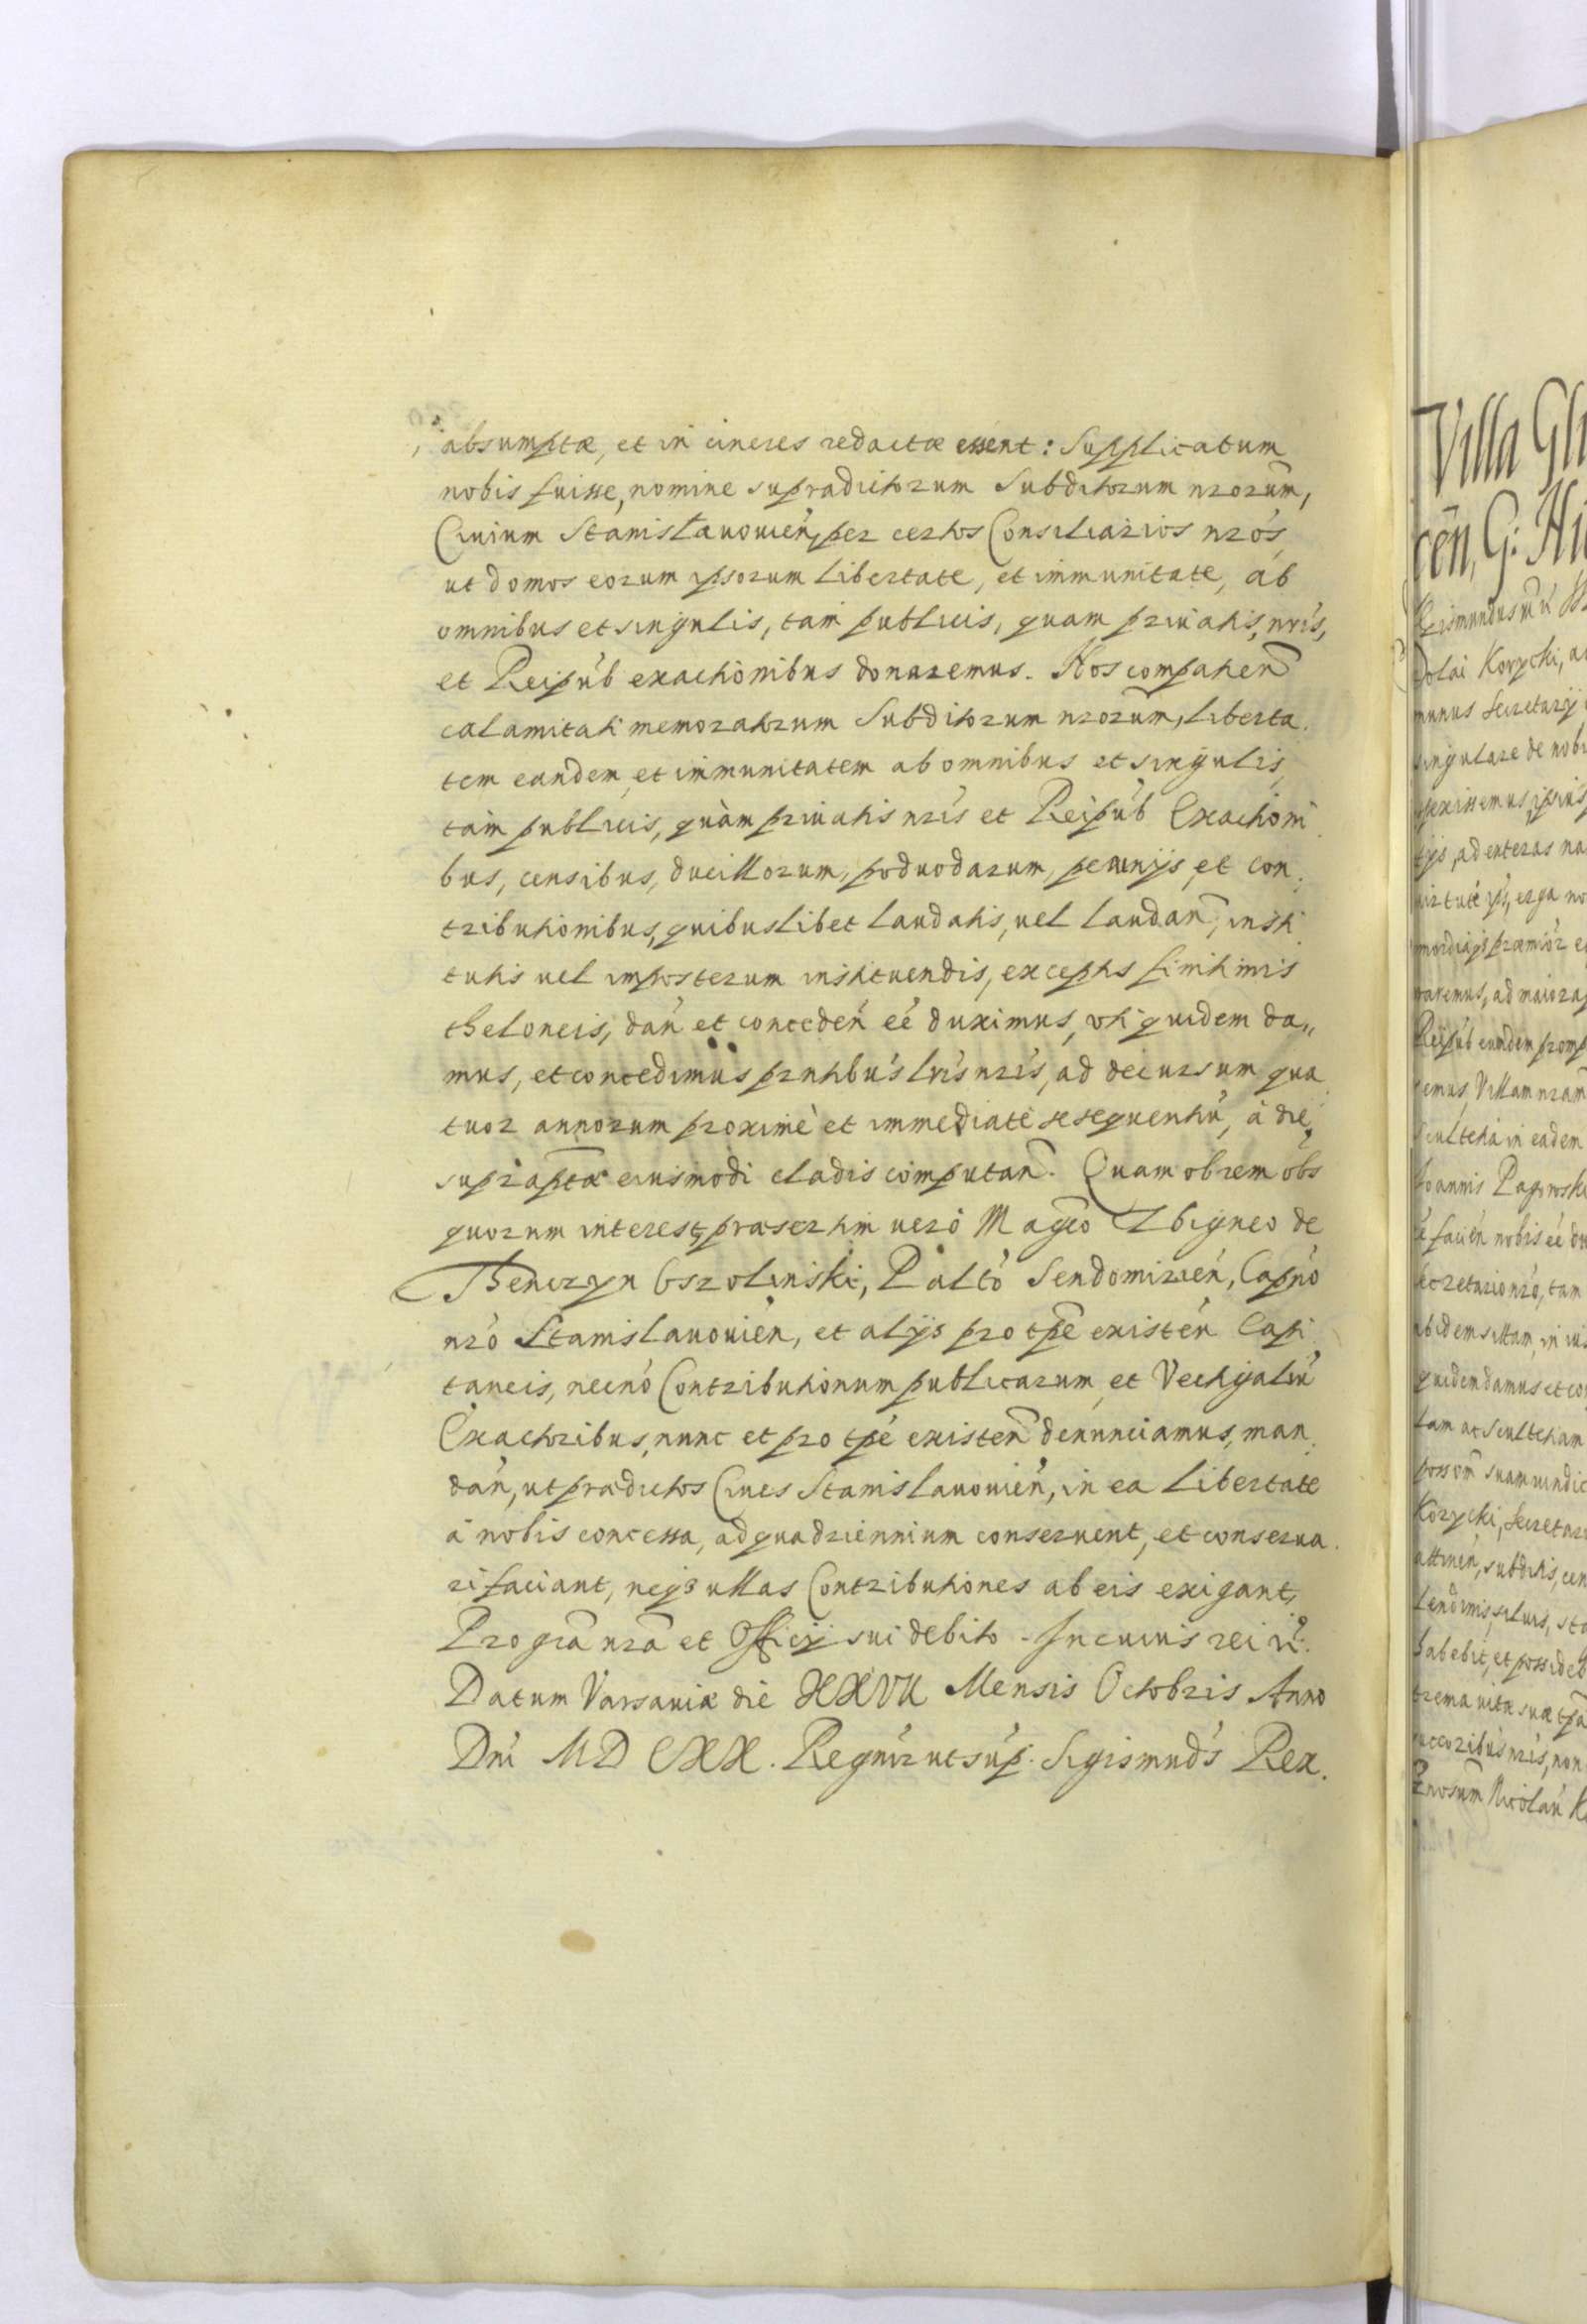 absumptæ, et in cineres redactæ essent: Supplicatum
nobis fuisse, nomine supradictorum Subditorum nrorum,
Civium Stanislavouień, per certos Consiliarios nros,
ut domos eorum ipsorum libertate, et immunitate, ab
omnibus et singulis, tam publicis, quam privatis, nris,
et Reipub exactionibus donaremus. Nos compatien
calamitati memoratorum Subditorum nrorum, liberta
tem eandem, et immunitatem ab omnibus et singulis,
tam publicis, quàm privatis nris et Reipub Exactioni
bus, censibus, ducillorum, podvodarum, pecunijs, et con
tributionibus, quibuslibet laudatis, vel laudan, insti
tutis vel imposterum instituendis, exceptis finitimis
theloneis, dan et conceden eé duximus, uti quidem da„
mus, et concedimus pntibus lris nris, ad decursum qua
tuor annorum proximè et immediatè sesequentiu, à die
supraptæ eiusmodi cladis computan. Quam obrem obs
quorum interest, præsertim vero Mageo Zbigneo de
Thenczyn Oszolinski, Palto Sendomirien, Capno
nro Stanislavouien, et alijs pro tpe existen Capi
taneis, necno Contributionum publicarum, et Vectigaliu
Exactoribus, nunc et pro tpe existen denunciamus, man
dan, ut prædictos Cives Stanislavouien, in ea libertate
à nobis concessa, ad quadriennium conservent, et conserva
ri faciant, neqз ullas Contributiones ab eis exigant,
Pro gra nra et Officij sui debito. In cuius rei
Datum Varsaviæ die XXVII Mensis Octobris Anno
Dni MDCXX. Regnor ut sup. Sigismuds Rex.
Villa
cen, G:
Korycki,
munus Secretarij
singulare de nobi
ad exteras na
erga no
Reipub eundem promp
Villam nram
in eadem
Joannis
facien nobis eé du
tam
ibidem sitam, in
quidem damus et co
tam ac Scultetiam
suam
Korycki, Secretar
attinen, subditis, cen
habebit, et possideb
vitæ suæ
nris, non
Nicolau